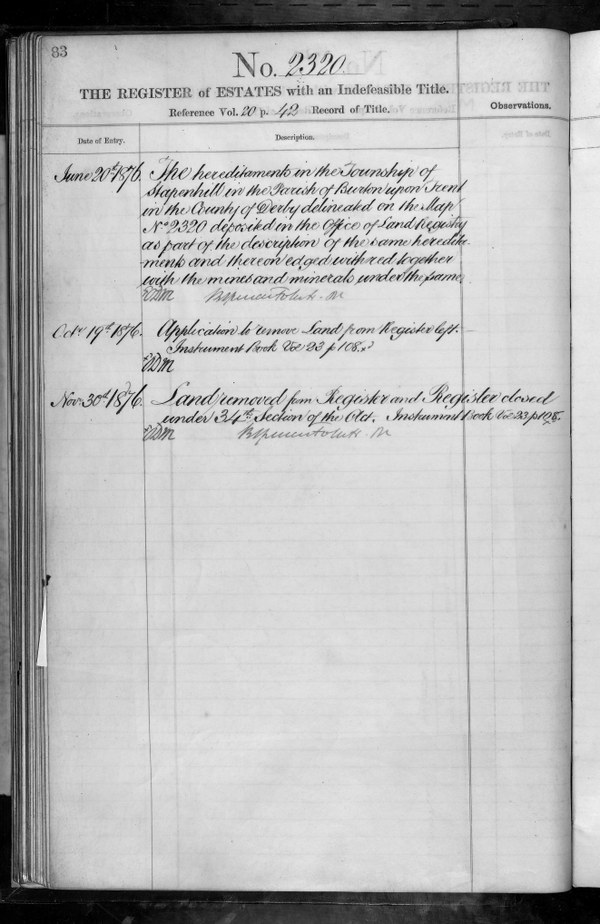 83
No. 2320
THE REGISTER of ESTATES with an Indefeasible Title.
Reference Vol. 20 p. 42 Record of Title.
Observations.
Date of Entry.
Description.
June 20th 1876.
The hereditaments in the Township of
Stapenhill in the Parish of Burton upon Trent
in the County of Derby delineated on the Map
No 2320 deposited in the Office of Land Registry
as part of the description of the same heredita-
ments and thereon edged with red together
with the mines and minerals under the same
Octr. 19th 1876.
Application to remove Land from Register left.
Instrument Book Vol 23 p 108.
Nov. 30th 1876.
Land removed from Register and Register closed
under 34th Section of the Act. Instrument Book Vol 23 p 108.